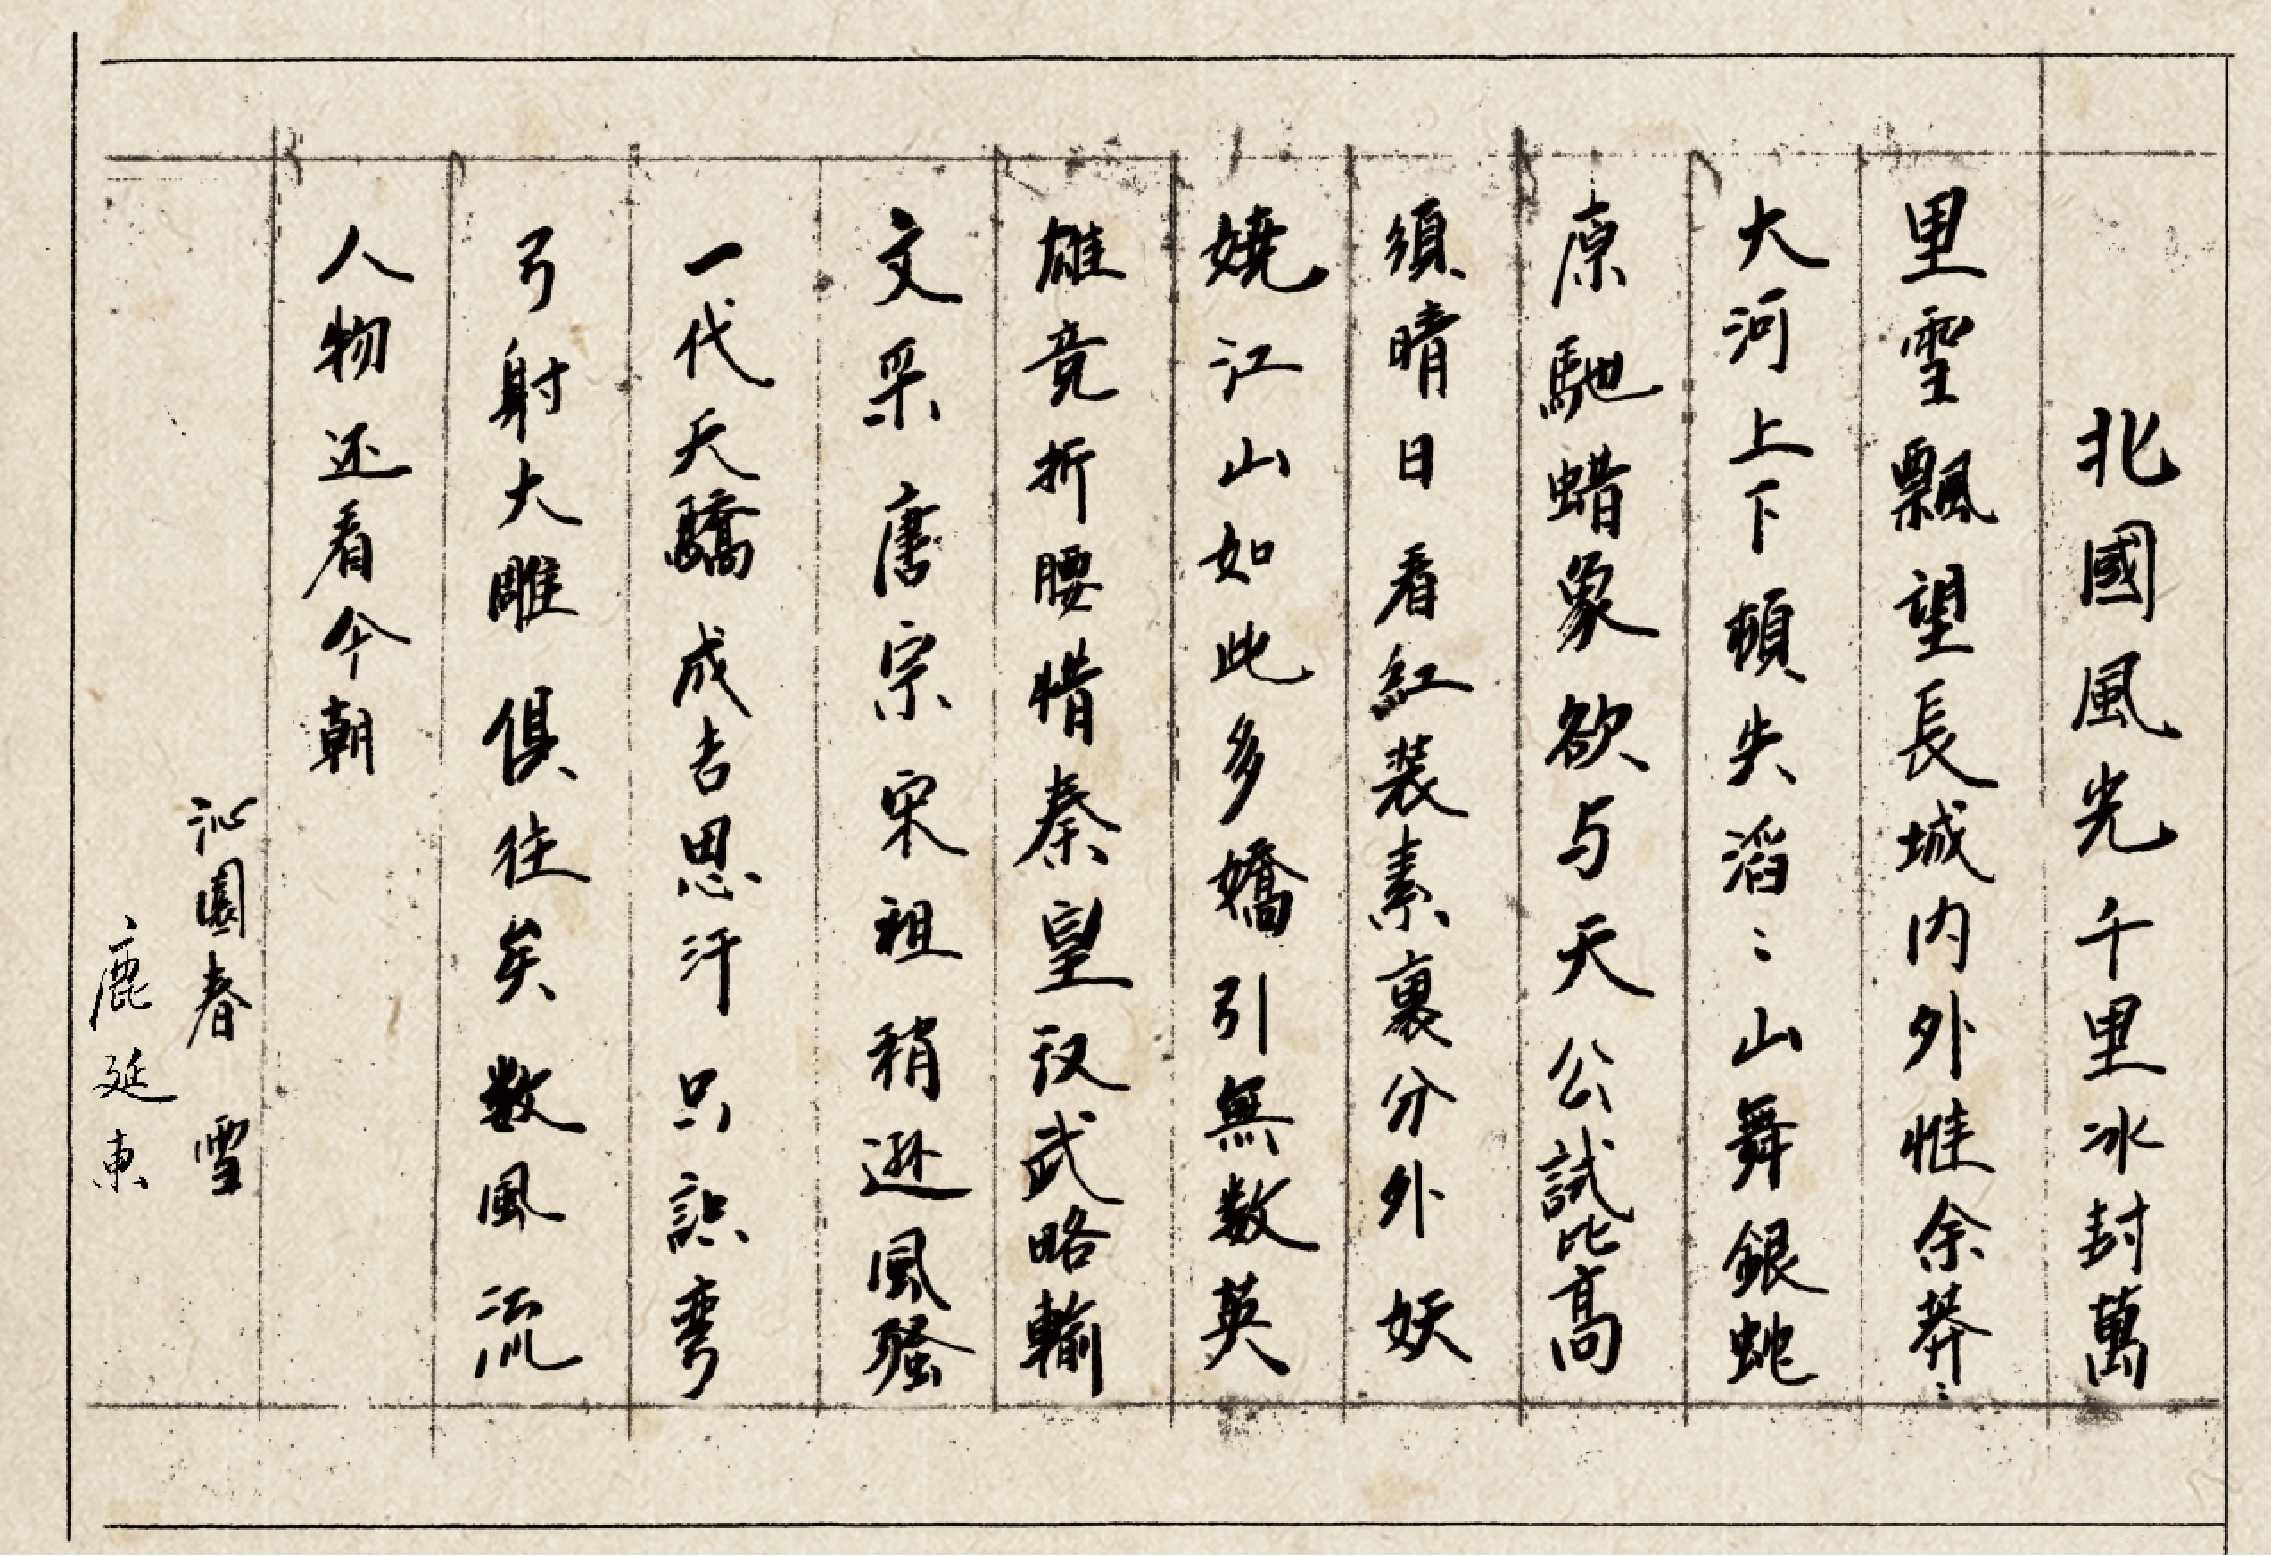 北國風光千里冰封萬
里雪飄望長城内外惟余莽〻
大河上下頓失滔〻山舞銀蛇
原馳蜡象欲与天公試比高
須晴日看紅装素裹分外妖
嬈江山如此多嬌引無数英
雄竞折腰惜秦皇汉武略輸
文采唐宗宋祖稍逊風騷
一代天驕成吉思汗只識弯
弓射大雕俱往矣数風流
人物还看今朝
沁園春 雪
鹿延東